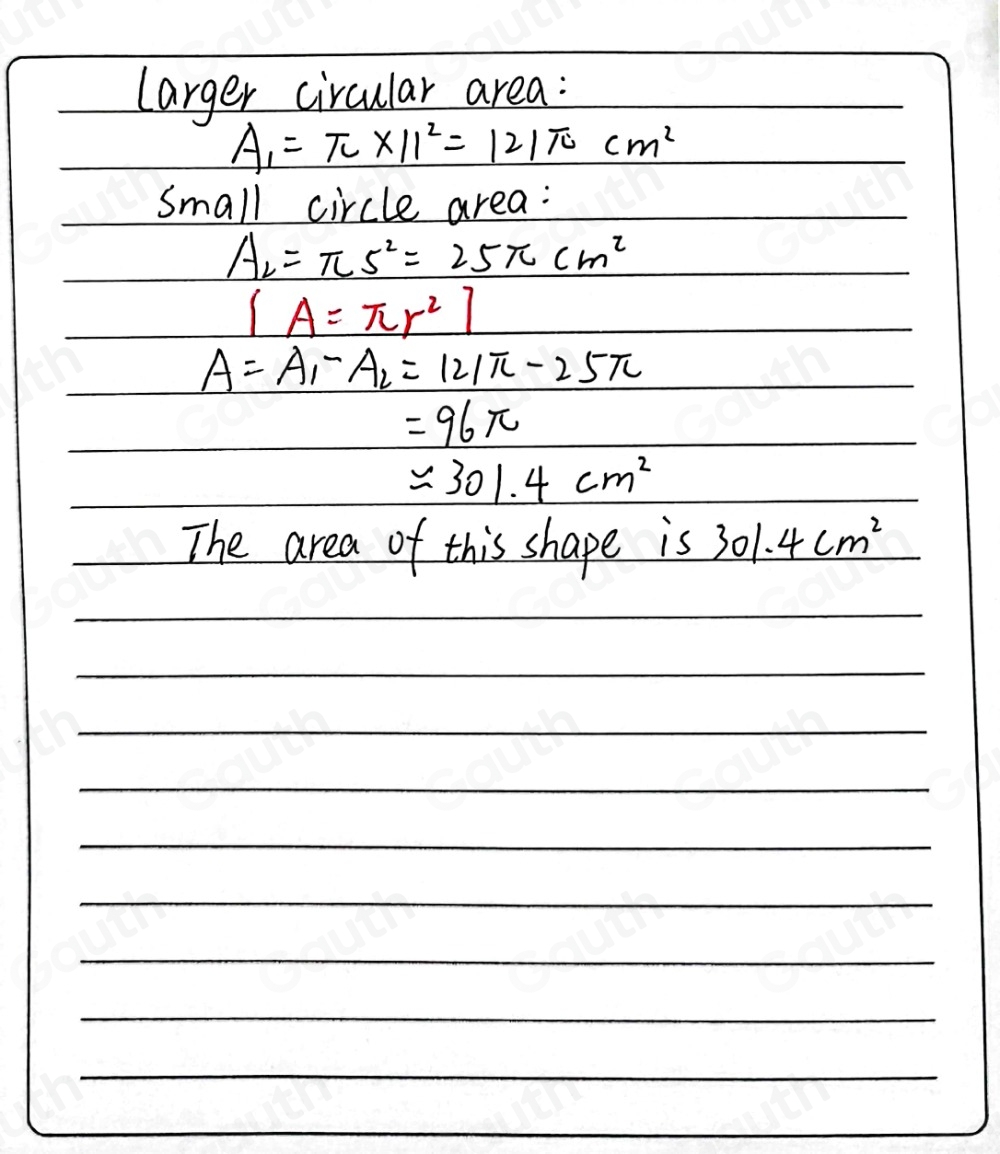 Larger circular area:
A₁ = π × 11² = 121π cm²
Small circle area:
A₂ = π5² = 25π cm²
[ A = πr² ]
A = A₁ - A₂ = 121π - 25π
= 96π
≈ 301.4 cm²
The area of this shape is 301.4 cm²
Gauth